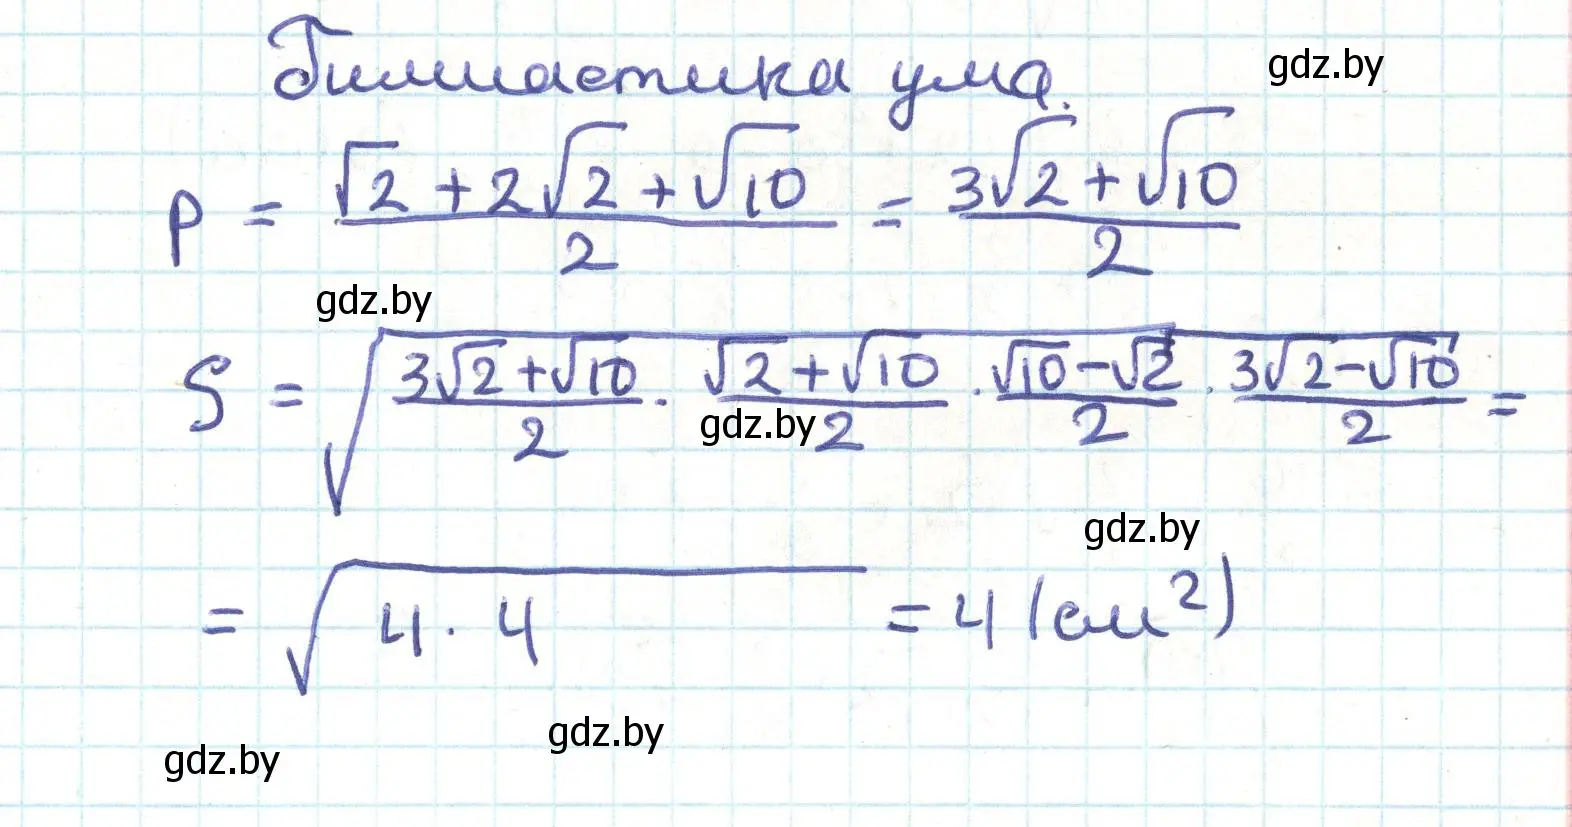 Гимнастика ума.
gdz.by
p = (√2 + 2√2 + √10)/2 = (3√2 + √10)/2
gdz.by
S = √((3√2+√10)/2 · (√2+√10)/2 · (√10-√2)/2 · (3√2-√10)/2) =
gdz.by
gdz.by
= √(4 · 4) = 4 (см²)
gdz.by
gdz.by